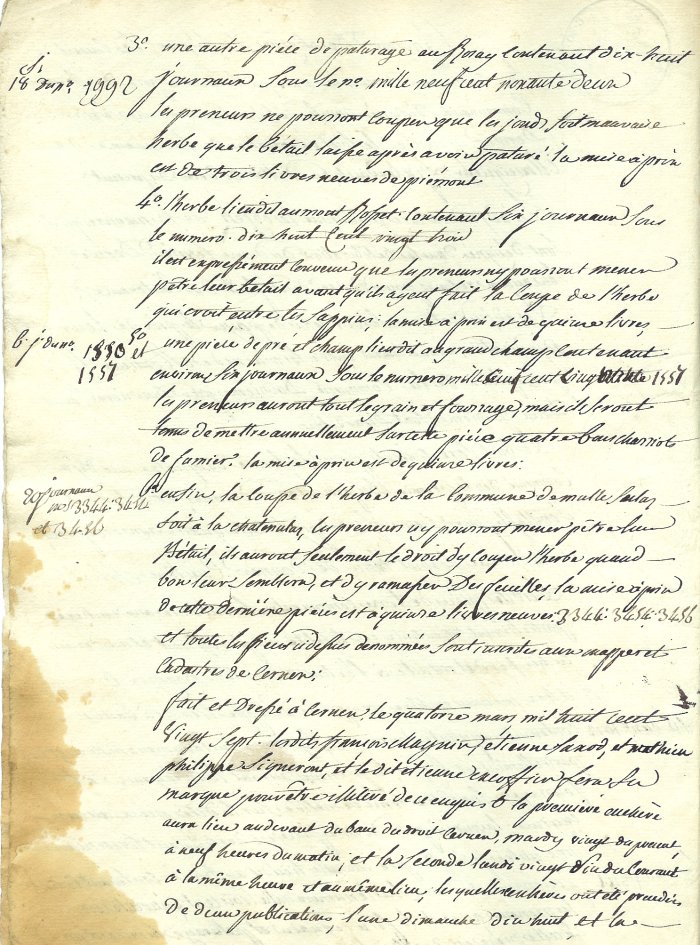 3.o une autre piéce de paturage au Roray contenant dix-huit
18 Jour.x 1992
journaux sous le no. mille neuf cent nonante deux
les preneurs ne pourront couper que les joncs et mauvaise
herbe que le bétail laisse après avoir paturé la mise à prix
est de trois livres neuves de piémont
4.o l'herbe lieudit au mont Rosset contenant six journaux sous
le numero dix huit cent vingt trois
il est expressément convenu que les preneurs n'y pourront mener
pêtre leur bétail avant qu'ils ayent fait la coupe de l'herbe
qui croit entre les sappins; la mise à prix est de quinze livres,
6. j. du no. 1550 et 1557
5o une piéce de pré et champ lieudit au grand champ contenant
environ six journaux sous le numero mille cinq cent cinq 1557
les preneurs auront tout le grain et fourrage, mais ils seront
tenus de mettre annuellement sur cette piéce quatre bons charriots
de fumier. la mise à prix est de quinze livres:
journaux
nos 3344: 3454
et 3456
6o enfin, la coupe de l'herbe de la Commune de
soit à la les preneurs n'y pourront mener pêtre leur
Bétail, ils auront seulement le droit d'y couper l'herbe quand
bon leur semblera, et d'y ramasser des feuilles, la mise à prix
de cette dernière piéce est à quinze livres neuves: 3344: 3454: 3456
et toutes les piéces ci dessus denommées sont inscrites aux mappe et
Cadastres de Cernex;
fait et Dressé à Cernex, le quatorze mars mil huit cent
vingt sept. lesdits françois Magnin, étienne Janod, et mathieu
philippe Signeront, et le dit étienne Encoffin fera sa
marque pour être illitéré de ce enquis & la première enchère
aura lieu au devant du banc du droit Cernex, mardy vingt du présent
à neuf heures du matin, et la seconde lundi vingt six du Courant
à la même heure et au même lieu, lesquelles enchères ont été precedées
De deux publications, l'une dimanche dix huit, et la